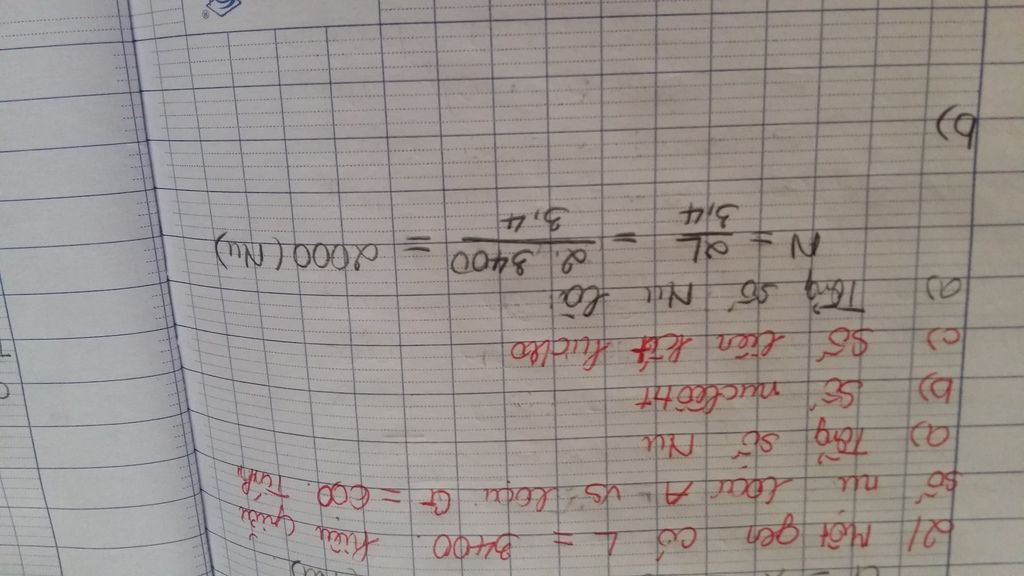 2/ Một gen có L = 3400. Hiệu giữa
số nu loại A vs loại G = 600. Tính
a) Tổng số Nu
b) Số nucleotit
c) Số liên kết hidro
a) Tổng số Nu là
N = 2L / 3,4 = 2. 3400 / 3,4 = 2000 (Nu)
b)